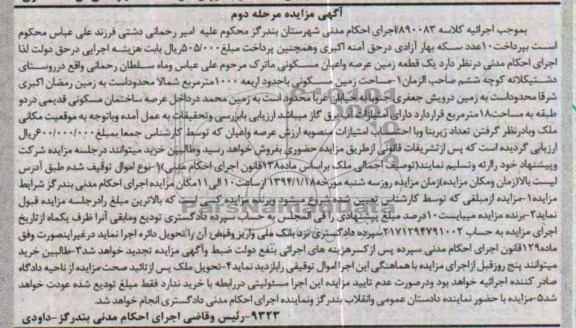 آگهی مزایده مرحله دوم
بموجب اجرائیه کلاسه ۸۹۰۰۸۳ اجرای احکام مدنی شهرستان بندرگز محکوم علیه امیر رحمانی دشتی فرزند علی عباس محکوم
است بپرداخت ۱۰ عدد سکه بهار آزادی درحق آمنه اکبری وهمچنین پرداخت مبلغ ۵۰۵/۰۰۰ ریال بابت هزینه اجرایی درحق دولت لذا
اجرای احکام مدنی درنظر دارد یک قطعه زمین عرصه واعیان مسکونی ماترک مرحوم علی عباس وماه سلطان رحمانی واقع درروستای
دشتیکلاته کوچه ششم صاحب الزمان ۱-مساحت زمین مسکونی باحدود اربعه ۱۰۰۰ مترمربع شمالا محدوداست به زمین رمضان اکبری
شرقا محدوداست به زمین درویش جعفری جنوبا به خیابان غربا محدود است به زمین محمد درداخل عرصه ساختمان مسکونی قدیمی دردو
طبقه به مساحت ۱۸ مترمربع قراردارد دارای امتیازات آب برق گاز میباشد ارزیابی بابررسی وتحقیقات به عمل آمده وباتوجه به موقعیت مکانی
ملک وبادرنظر گرفتن تعداد زیربنا وبا احتساب امتیازات منصوبه ارزش عرصه واعیان که توسط کارشناس جمعا بمبلغ ۶۰۰/۰۰۰/۰۰۰ ریال
ارزیابی گردیده است که پس ازتشریفات قانونی ازطریق مزایده حضوری بفروش خواهد رسید وطالبین خرید میتوانند درجلسه مزایده شرکت
وپیشنهاد خود راارئه وتسلیم نمایند(توصیف اجمالی ملک براساس ماده ۱۳۸ قانون اجرای احکام مدنی)۱-نوع اموال توقیف شده طبق آدرس
لیست بالا(زمان ومکان مزایده)زمان مزایده روزسه شنبه مورخه ۱۳۹۴/۱/۱۸ ازساعت ۱۰ الی ۱۱ مکان مزایده اجرای احکام مدنی بندرگز شرایط
مزایده ۱-مزایده ازمبلغی که توسط کارشناس تعیین شده شروع میشود برنده مزایده کسی است که بالاترین مبلغ رادرجلسه مزایده قبول
نماید ۲-برنده مزایده میبایست ۱۰ درصد مبلغ پیشنهادی را فی المجلس به حساب سپرده دادگستری تودیع ومابقی آنرا ظرف یکماه ازتاریخ
اجرای مزایده به حساب ۲۱۷۱۲۹۴۷۹۱۰۰۲ سپرده دادگستری نزد بانک ملی واریز وفیش آن را تحویل دائره اجرا نماید درغیراینصورت وفق
ماده ۱۲۹ قانون اجرای احکام مدنی سپرده پس از کسرهزینه های اجرائی بنفع دولت ضبط وآگهی مزایده تجدید خواهد شد ۳-طالبین خرید
میتوانند پنج روزقبل ازاجرای مزایده با هماهنگی این اجرا اموال توقیفی رابازدید نماید ۴-تحویل ملک پس ازتائید صحت مزایده از ناحیه دادگاه
صادر کننده اجرائیه خواهد بود ودرصورت عدم تایید مزایده این اجرا مسئولیتی دررابطه با خرید ندارد فقط مبلغ تودیع شده عودت خواهد
شد ۵-مزایده با حضور نماینده دادستان عمومی وانقلاب بندرگز ونماینده اجرای احکام مدنی دادگستری انجام خواهد شد.
۹۳۲۳-رئیس وقاضی اجرای احکام مدنی بندرگز-داودی